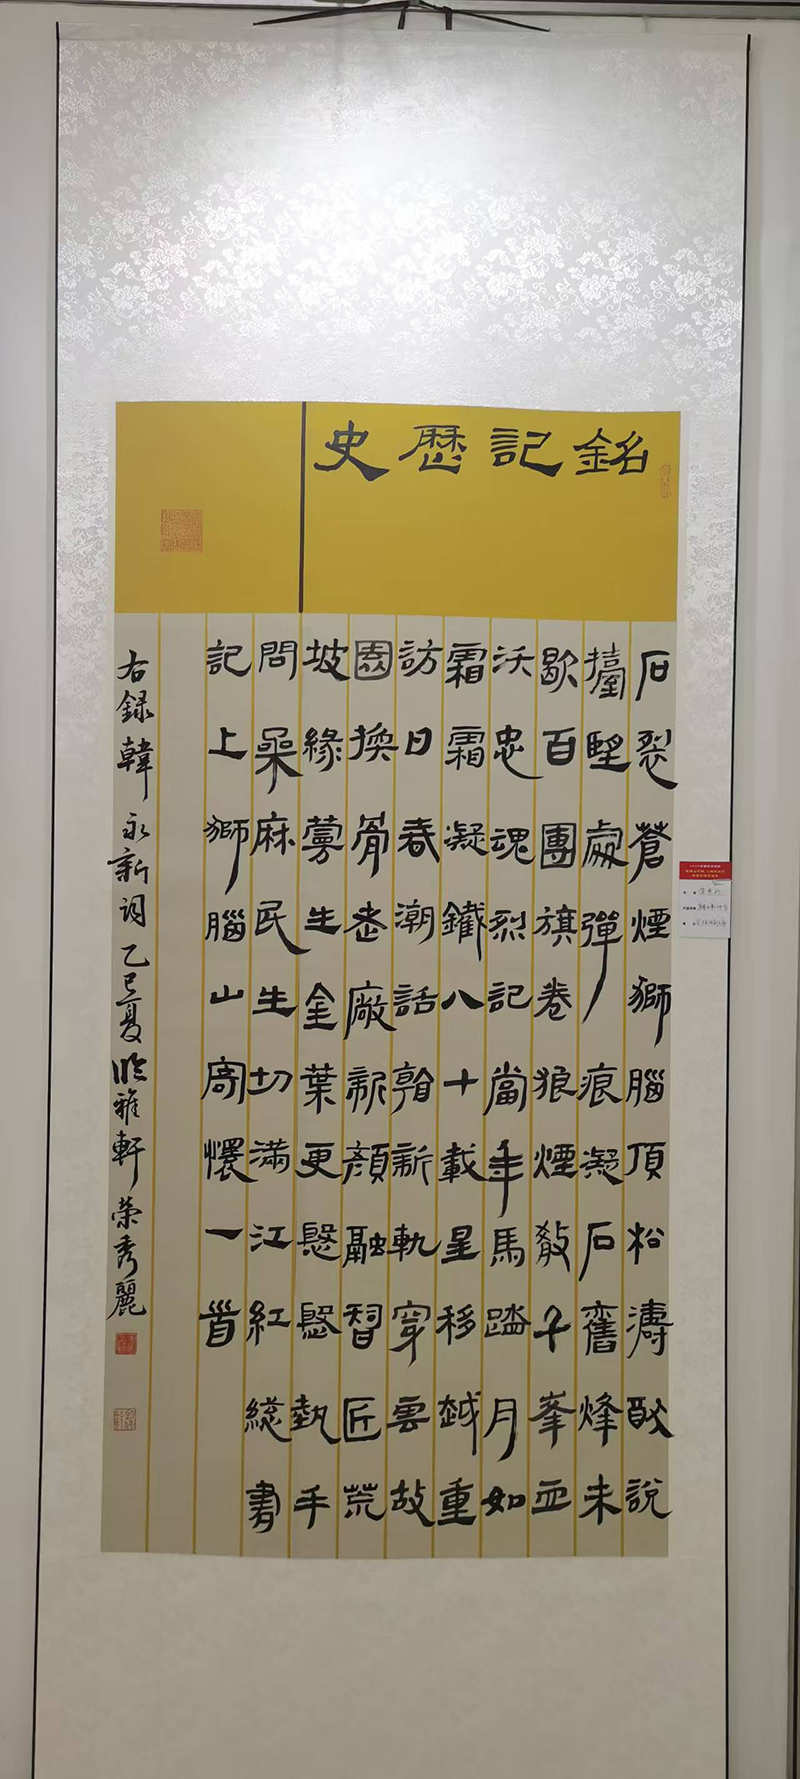 銘記歷史
石裂蒼煙獅腦頂松濤猶說
擡望處彈痕凝石舊烽未
歇百團旗卷狼煙散千峯血
沃忠魂烈記當年馬踏月如
霜霜凝鐵八十載星移越重
訪日春潮話翰新軌穿雲故
園換骨老廠新顏融智匠荒
坡綠夢生金葉更慇慇執手
問桑麻民生切滿江紅總書
記上獅腦山寄懷一首
右録韓永新詞乙巳夏 雅軒榮秀麗